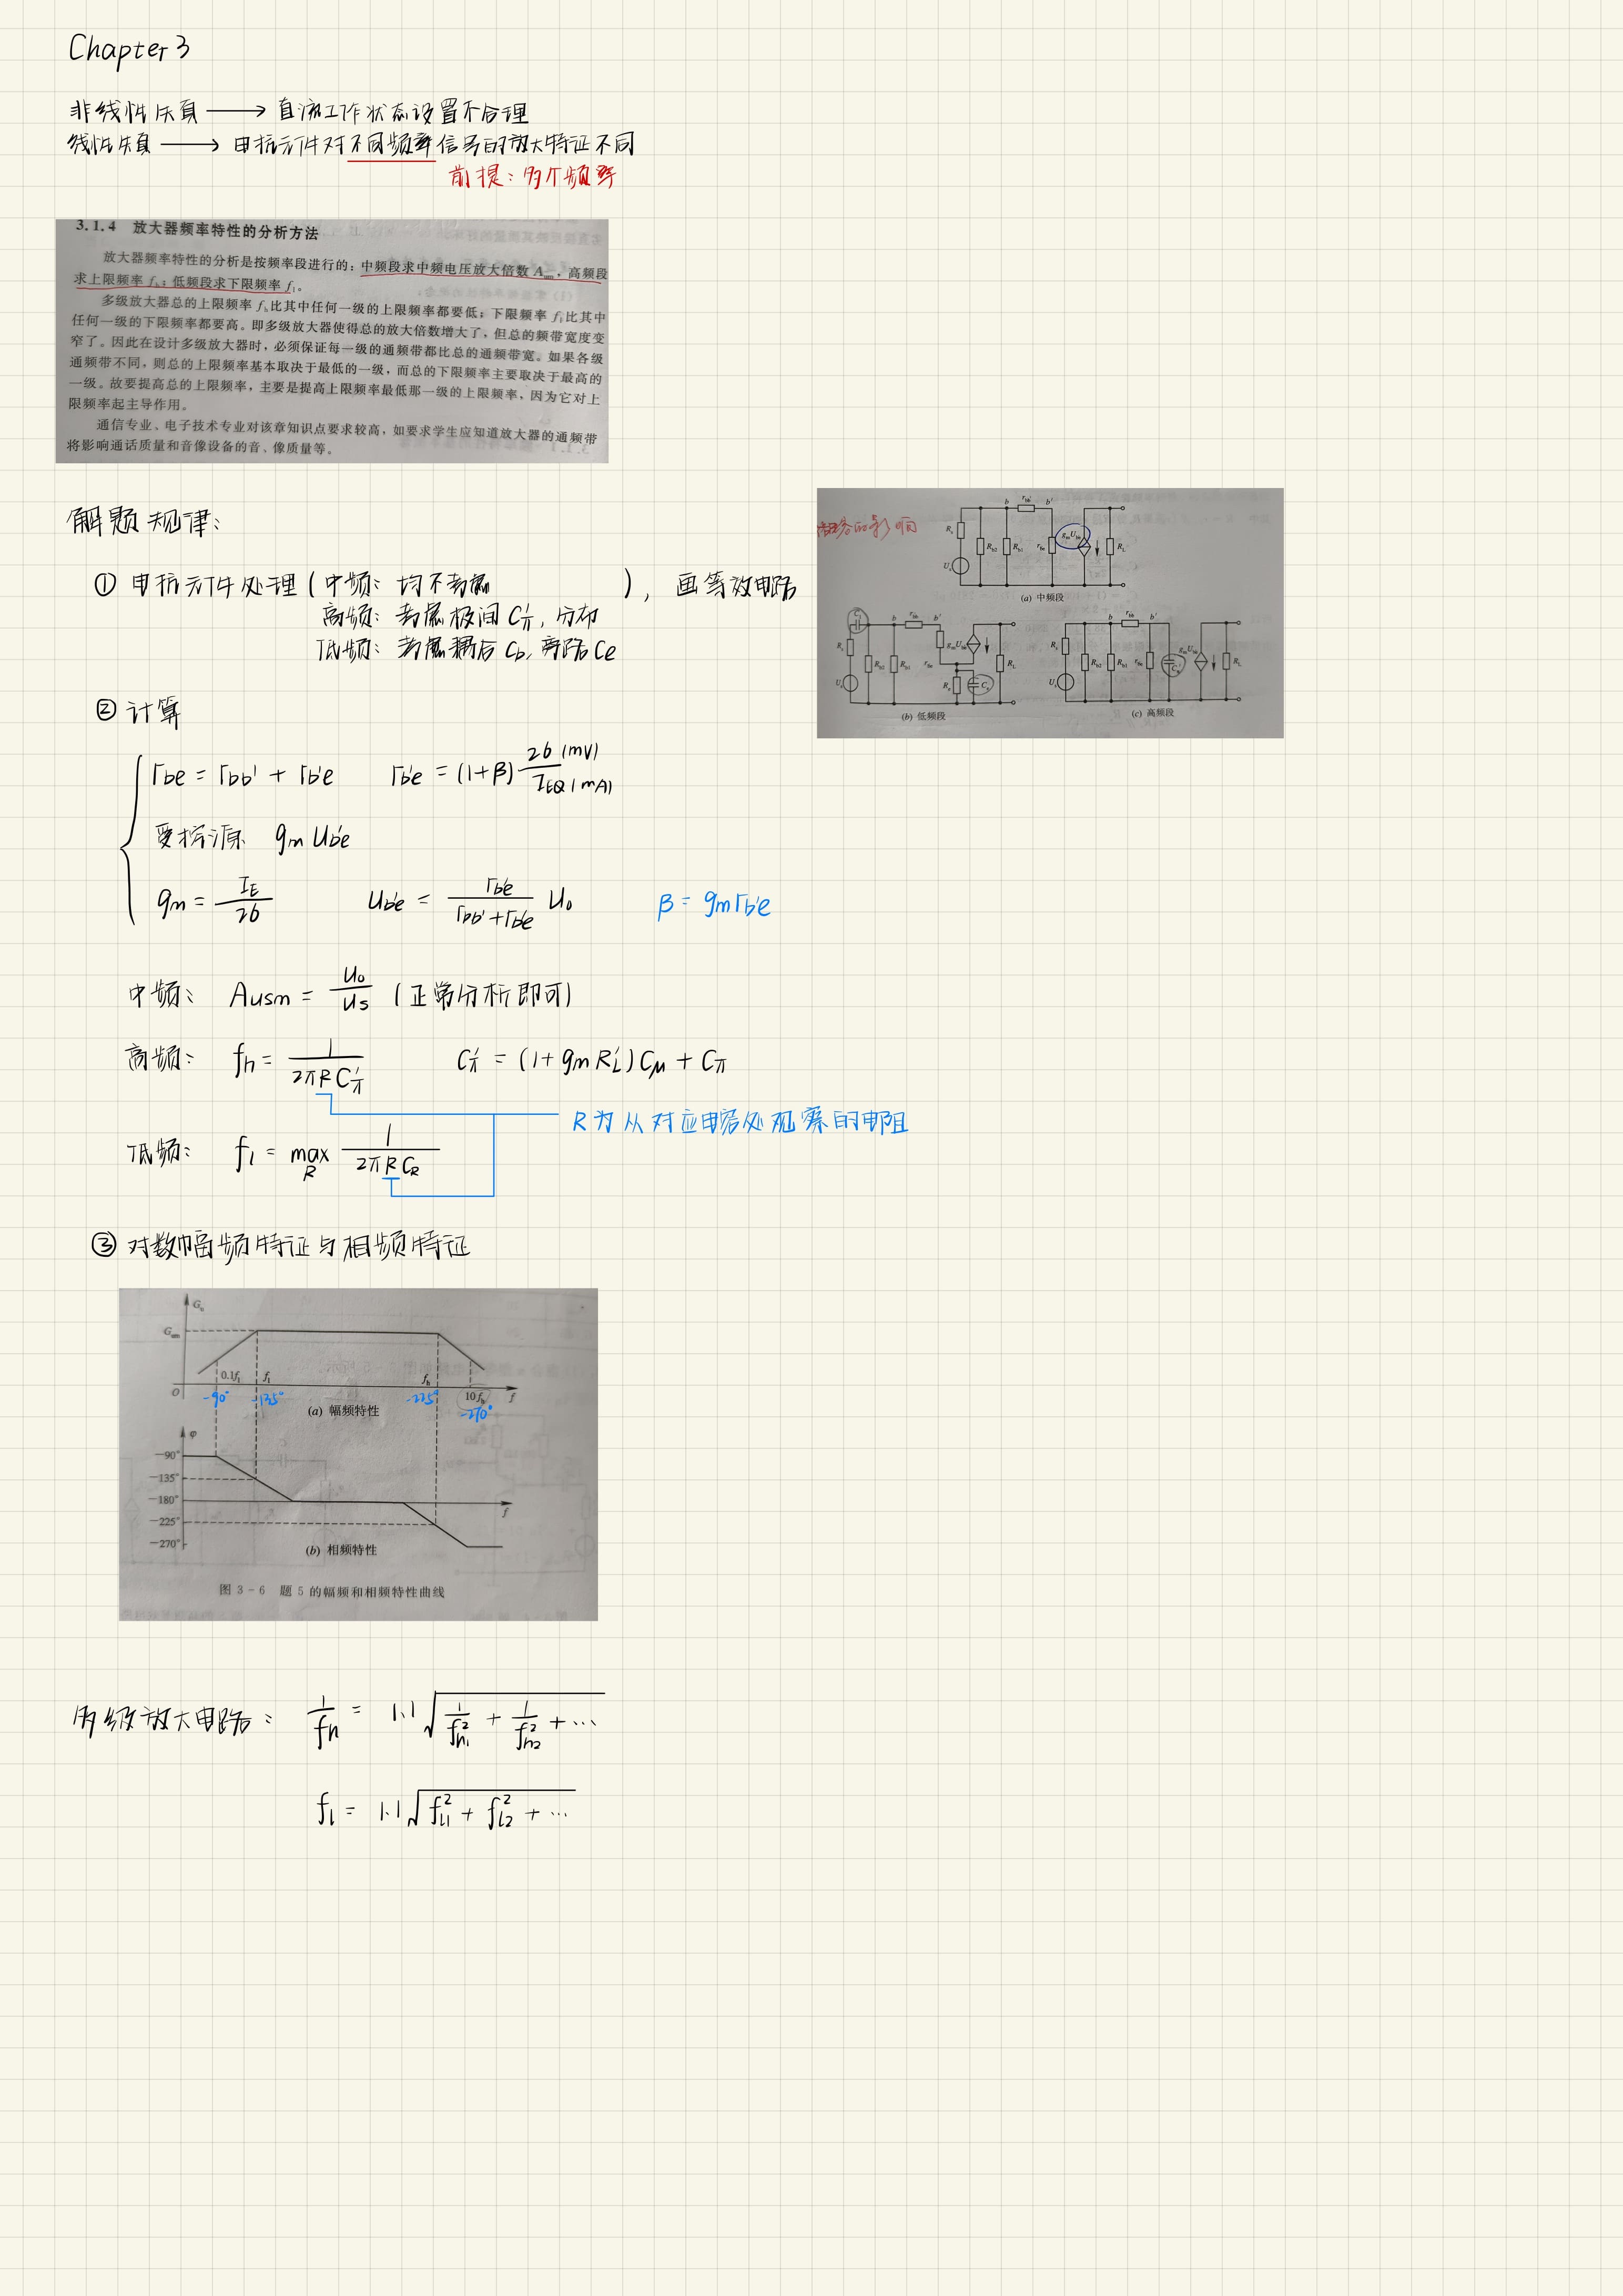 Chapter 3
非线性失真 ⟶ 直流工作状态设置不合理
线性失真 ⟶ 电抗元件对不同频率信号的放大特征不同
前提：多个频率
3.1.4 放大器频率特性的分析方法
放大器频率特性的分析是按频率段进行的：中频段求中频电压放大倍数 Aum，高频段
求上限频率 fh；低频段求下限频率 fl。
多级放大器总的上限频率 fh比其中任何一级的上限频率都要低；下限频率 fl比其中
任何一级的下限频率都要高。即多级放大器使得总的放大倍数增大了，但总的频带宽度变
窄了。因此在设计多级放大器时，必须保证每一级的通频带都比总的通频带宽。如果各级
通频带不同，则总的上限频率基本取决于最低的一级，而总的下限频率主要取决于最高的
一级。故要提高总的上限频率，主要是提高上限频率最低那一级的上限频率，因为它对上
限频率起主导作用。
通信专业、电子技术专业对该章知识点要求较高，如要求学生应知道放大器的通频带
将影响通话质量和音像设备的音、像质量等。
解题规律：
① 电抗元件处理（中频：均不考虑 ），画等效电路
高频：考虑极间 Cπ′，分布
低频：考虑耦合 Cb，旁路 Ce
电容的影响
b rbb′ b′
Rs Rb2 Rb1 rb′e gmUb′e RL
Us
(a) 中频段
b rbb′ b′
Rs Rb2 Rb1 rb′e gmUb′e RL
Us Re Ce
(b) 低频段
b rbb′ b′
Rs Rb2 Rb1 rb′e gmUb′e RL
Us
(c) 高频段
② 计算
rbe = rbb′ + rb′e rb′e = (1+β) 26(mV)/IEQ(mA)
受控源 gm Ub′e
gm = IE/26 Ub′e = rb′e/(rbb′+rb′e) U0 β = gm rb′e
中频： Ausm = U0/Us (正常分析即可)
高频： fh = 1/(2πRCπ′) Cπ′ = (1+gm RL′)Cμ + Cπ
R为从对应电容处观察的电阻
低频： fl = max R 1/(2πRCR)
③ 对数幅频特征与相频特征
Gu
Gum
O 0.1fl fl fh 10fh f
-90° -135° -225° -270°
(a) 幅频特性
φ
−90°
−135°
−180°
f
−225°
−270°
(b) 相频特性
图 3-6 题 5 的幅频和相频特性曲线
多级放大电路： 1/fh = 1.1√(1/fh1² + 1/fh2² + ⋯)
fl = 1.1√(fl1² + fl2² + ⋯)